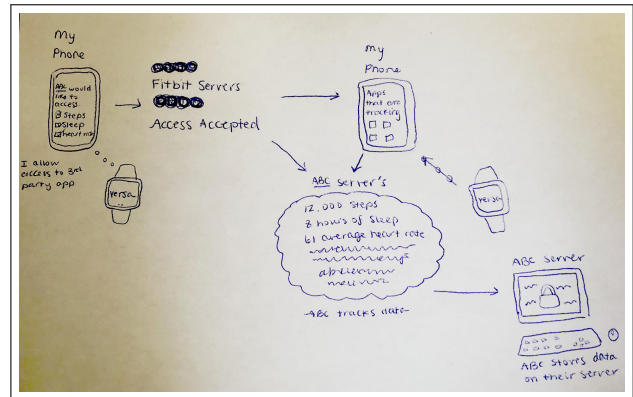 My
Phone
ABC would
like to
access
Steps
Sleep
heart rate
I allow
access to 3rd
party app
versa
Fitbit Servers
Access Accepted
my
Phone
Apps
that are
tracking
versa
ABC server's
12,000 steps
8 hours of sleep
61 average heart rate
-ABC tracks data-
ABC Server
ABC stores data
on their server